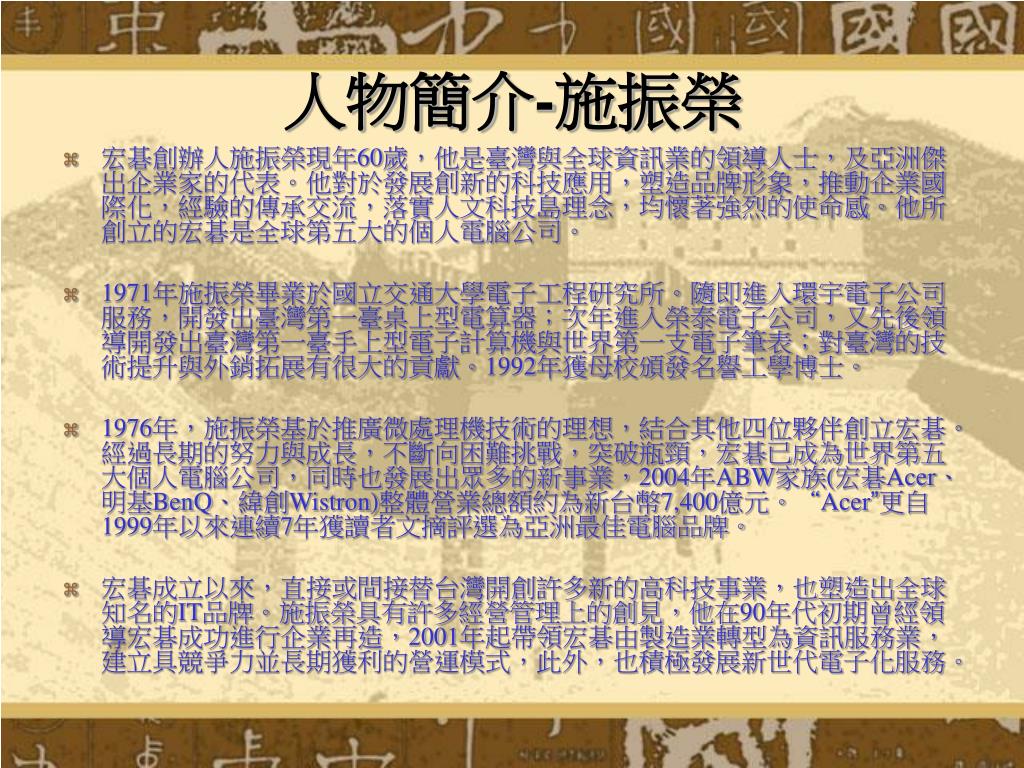 人物簡介-施振榮
宏碁創辦人施振榮現年60歲，他是臺灣與全球資訊業的領導人士，及亞洲傑
出企業家的代表。他對於發展創新的科技應用，塑造品牌形象，推動企業國
際化，經驗的傳承交流，落實人文科技島理念，均懷著強烈的使命感。他所
創立的宏碁是全球第五大的個人電腦公司。
1971年施振榮畢業於國立交通大學電子工程研究所。隨即進入環宇電子公司
服務，開發出臺灣第一臺桌上型電算器；次年進入榮泰電子公司，又先後領
導開發出臺灣第一臺手上型電子計算機與世界第一支電子筆表；對臺灣的技
術提升與外銷拓展有很大的貢獻。1992年獲母校頒發名譽工學博士。
1976年，施振榮基於推廣微處理機技術的理想，結合其他四位夥伴創立宏碁。
經過長期的努力與成長，不斷向困難挑戰，突破瓶頸，宏碁已成為世界第五
大個人電腦公司，同時也發展出眾多的新事業，2004年ABW家族(宏碁Acer、
明基BenQ、緯創Wistron)整體營業總額約為新台幣7,400億元。“Acer”更自
1999年以來連續7年獲讀者文摘評選為亞洲最佳電腦品牌。
宏碁成立以來，直接或間接替台灣開創許多新的高科技事業，也塑造出全球
知名的IT品牌。施振榮具有許多經營管理上的創見，他在90年代初期曾經領
導宏碁成功進行企業再造，2001年起帶領宏碁由製造業轉型為資訊服務業，
建立具競爭力並長期獲利的營運模式，此外，也積極發展新世代電子化服務。